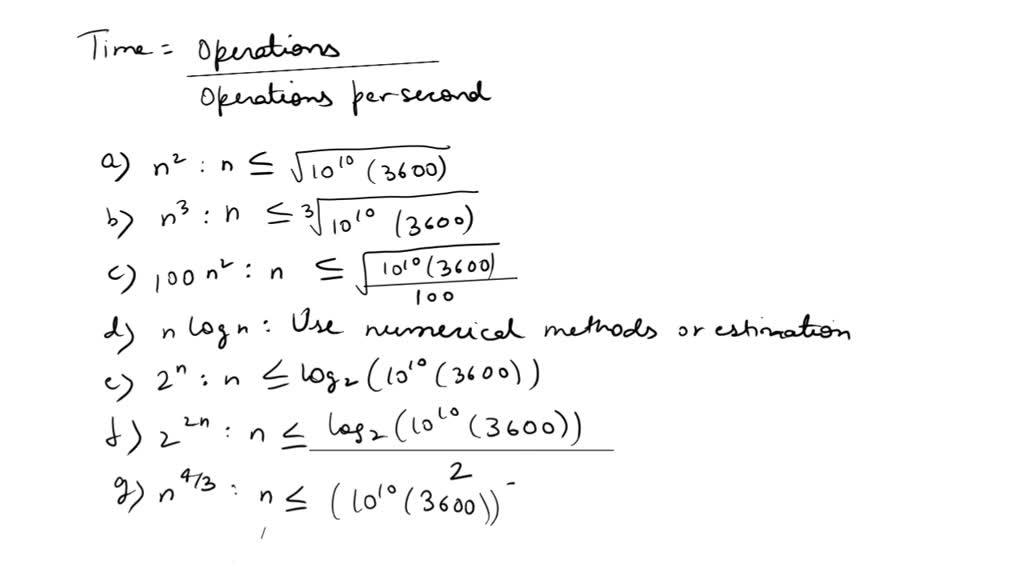 Time = Operations
Operations per second
a) n² : n ≤ √10¹⁰ (3600)
b) n³ : n ≤ ³√10¹⁰ (3600)
c) 100 n² : n ≤ √10¹⁰ (3600)
100
d) n log n : Use numerical methods or estimation
e) 2ⁿ : n ≤ log₂ (10¹⁰ (3600))
f) 2²ⁿ : n ≤ log₂ (10¹⁰ (3600))
2
g) n⁴/³ : n ≤ (10¹⁰ (3600))⁻